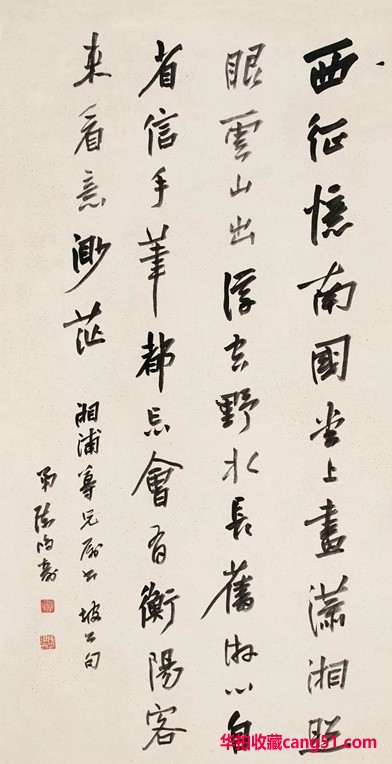 西征憶南國堂上畫瀟湘照
眼雲山出浮空野水長舊游心自
省信手筆都忘會有衡陽客
來看意渺茫
湘浦尊兄屬書 坡公句
弟陳
华拍收藏cang51.com